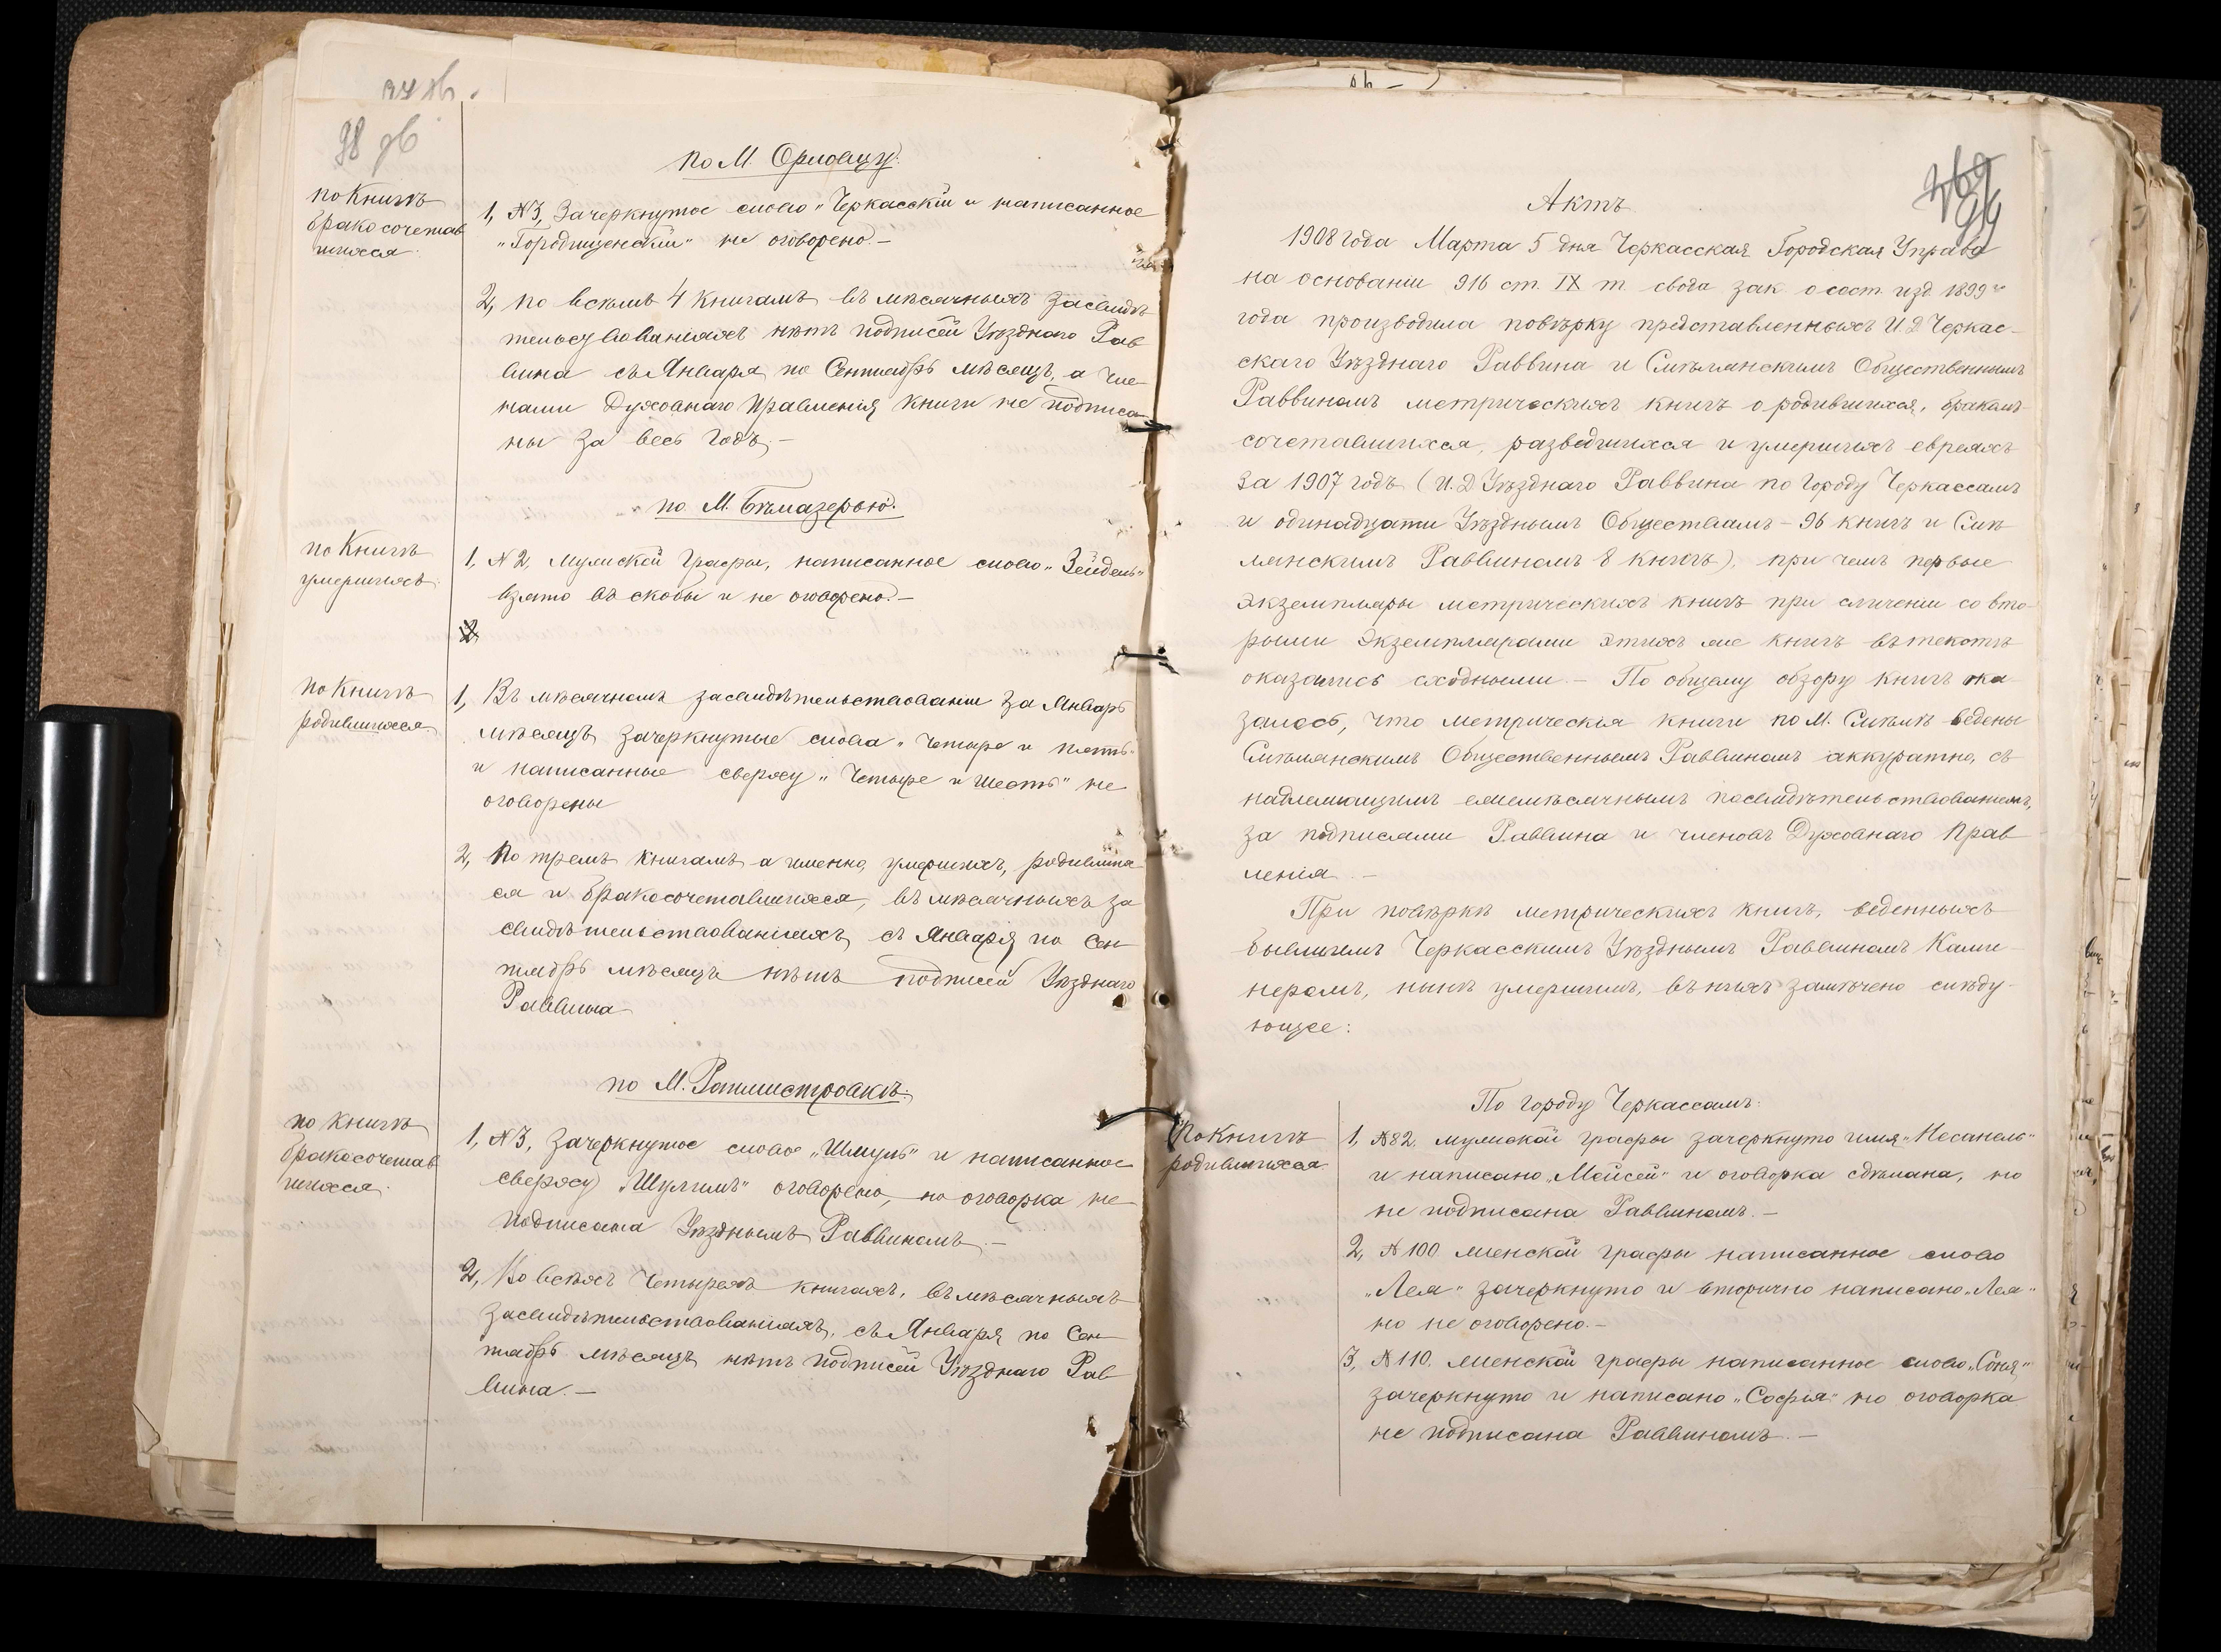 98 об
по М. Орловцу.
по Книгѣ
бракосочетав
шихся.
1, №3, Зачеркнутое слово „Черкасскій" и написанное
„Городищенскій" не оговорено.—
2, по всѣмъ 4 книгамъ въ мѣсячныхъ засвидѣ
тельствованіяхъ нѣтъ подписей Уѣзднаго Рав
вина съ Января по Сентябрь мѣсяцъ, а чле-
нами Духовнаго Правленія книги не подписа
ны за весь годъ.—
по М. Бѣлазерью.
по Книгѣ
умершихъ.
1, №2, мужской графы, написанное слово „Зейдель"
взято въ скобы и не оговорено.—
2,
по Книгѣ
родившихся
1, Въ мѣсячномъ засвидѣтельствованіи за Январь
мѣсяцъ зачеркнутые слова „четыре и пять"
и написанные сверху „Четыре и шесть" не
оговорены
2, По тремъ книгамъ а именно, умершихъ, родивших
ся и бракосочетавшихся, въ мѣсячныхъ за
свидѣтельствованіяхъ, съ Января по Сен
тябрь мѣсяцъ нѣтъ подписей Уѣзднаго
Раввина
по М. Ротмистровкѣ.
по книгѣ
бракосочетав
шихся.
1, №3, зачеркнутое слово „Шмуль" и написанное
сверху „Шулимъ" оговорено, но оговорка не
подписана Уѣзднымъ Раввиномъ.—
2, Во всѣхъ четырехъ книгахъ, въ мѣсячныхъ
засвидѣтельствованіяхъ, съ Января по Сен
тябрь мѣсяцъ нѣтъ подписей Уѣзднаго Рав
вина.—
Актъ
1908 года Марта 5 дня Черкасская Городская Управа
на основаніи 916 ст. IX т. свода зак. о сост. изд. 1899 го
года производила повѣрку представленныхъ И. Д. Черкас-
скаго Уѣзднаго Раввина и Смѣлянскимъ Общественнымъ
Раввиномъ метрическихъ книгъ о родившихся, бракомъ
сочетавшихся, разведшихся и умершихъ евреяхъ
за 1907 годъ (И. Д. Уѣзднаго Раввина по городу Черкассамъ
и одинадцати Уѣзднымъ Обществамъ - 96 книгъ и Смѣ
лянскимъ Раввиномъ 8 книгъ), при чемъ первые
экземпляры метрическихъ книгъ при сличеніи со вто-
рыми экземплярами этихъ же книгъ въ текстѣ
оказались сходными.— По общему обзору книгъ ока
залось, что метрическія книги по М. Смѣлѣ ведены
Смѣлянскимъ Общественнымъ Раввиномъ аккуратно, съ
надлежащимъ ежемѣсячнымъ засвидѣтельствованіемъ,
за подписями Раввина и членовъ Духовнаго Прав
ленія.—
При повѣркѣ метрическихъ книгъ, веденныхъ
бывшимъ Черкасскимъ Уѣзднымъ Раввиномъ Каши-
неромъ, нынѣ умершимъ, въ нихъ замѣчено слѣду-
ющее:
По городу Черкассамъ:
По Книгѣ
родившихся
1, №82. мужской графы зачеркнуто имя „Несанель"
и написано „Мойсей" и оговорка сдѣлана, но
не подписана Раввиномъ.—
2, №100 женской графы написанное слово
„Лея" зачеркнуто и вторично написано „Лея"
но не оговорено.—
3, №110. женской графы написанное слово „Соня"
зачеркнуто и написано „Софія" но оговорка
не подписана Раввиномъ.—